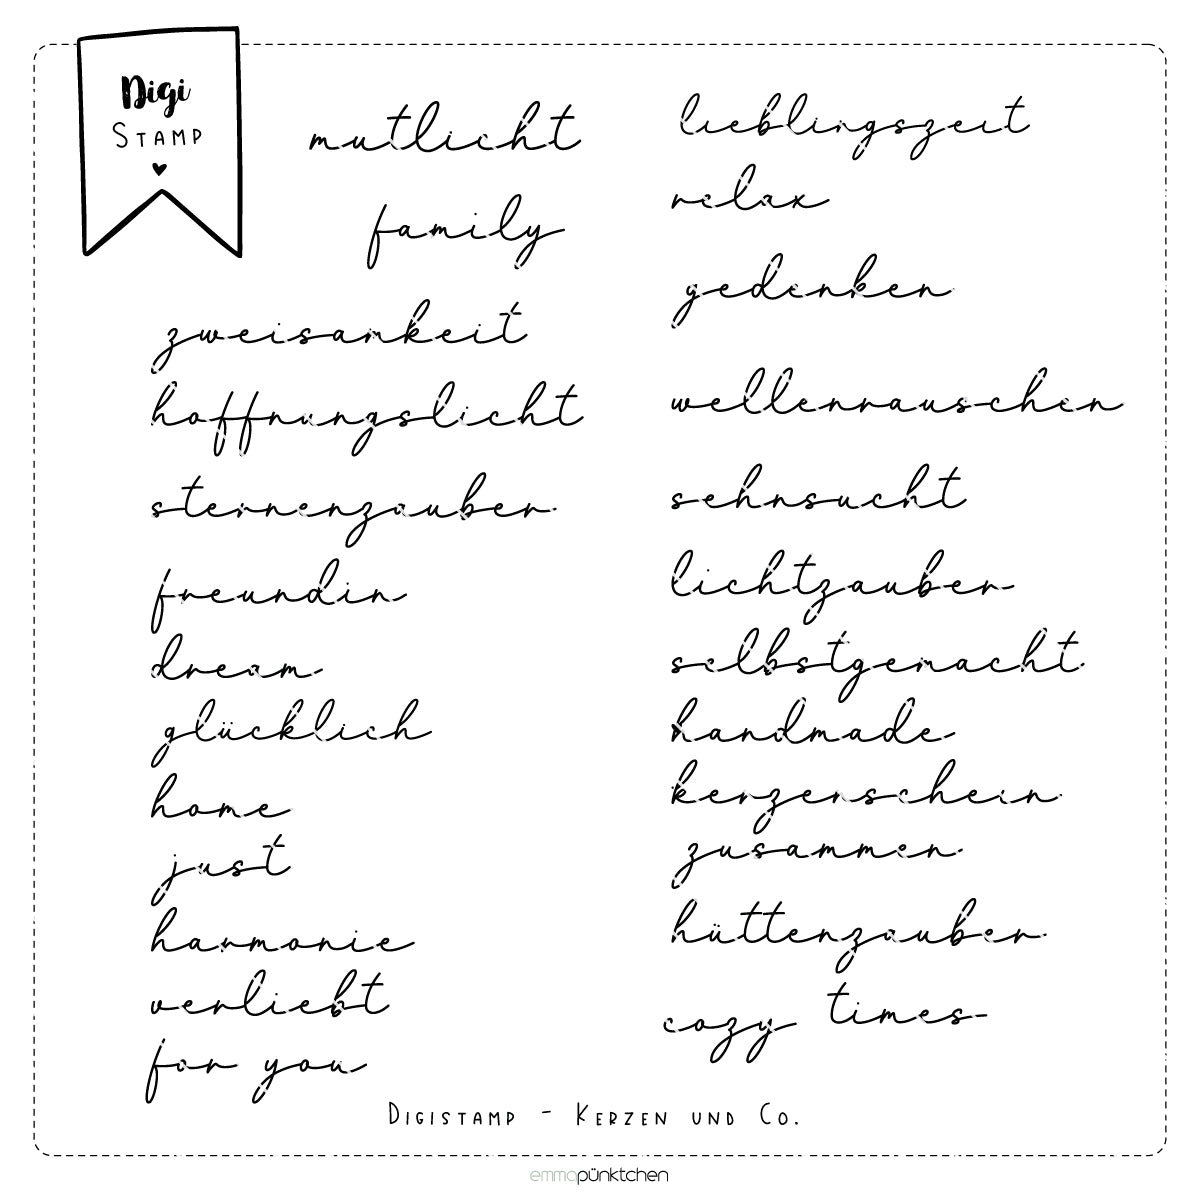 Digi
Stamp
mutlicht
family
zweisamkeit
hoffnungslicht
sternenzauber
freundin
dream
glücklich
home
just
harmonie
verliebt
for you
lieblingszeit
relax
gedenken
wellenrauschen
sehnsucht
lichtzauber
selbstgemacht
handmade
kerzenschein
zusammen
hüttenzauber
cozy times
Digistamp - Kerzen und Co.
emmapünktchen